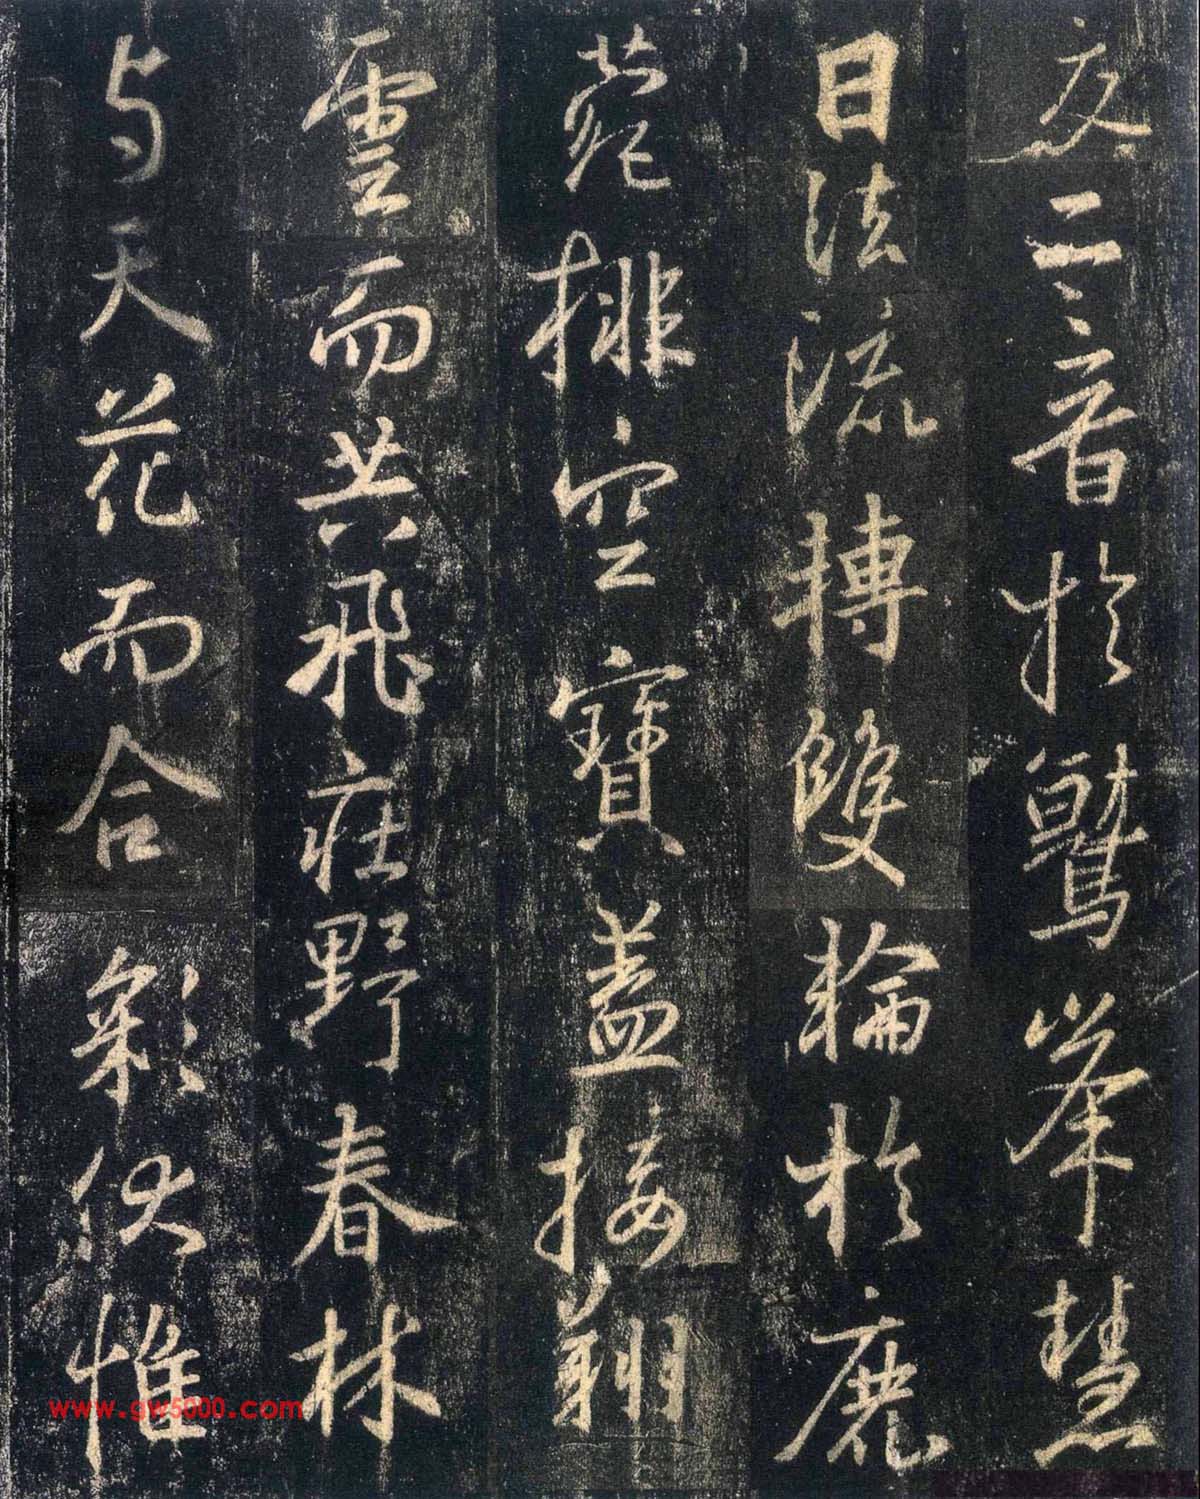 夜二音於鷲峯慧
日法流轉雙輪於鹿
菀排空寶蓋接翔
雲而共飛莊野春林
与天花而合彩伏惟
www.gw5000.com